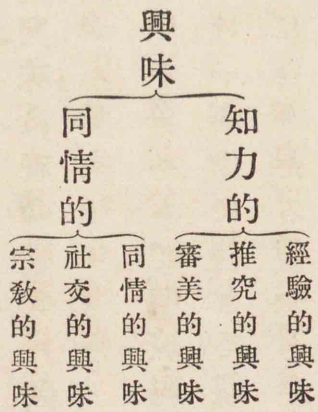 興味
知力的
同情的
經驗的興味
推究的興味
審美的興味
同情的興味
社交的興味
宗敎的興味